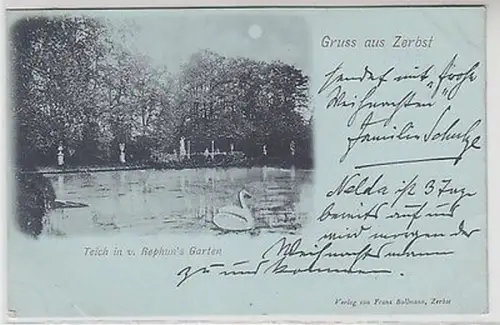 Gruss aus Zerbst
sendet mit "frohe
Weihnachten"
Familie Schulze
Nelda ist 3 Tage
bereits auf und
wird morgen der
Weihnachtsmann
zu uns kommen.
Teich in v. Rephun's Garten
Verlag von Franz Bollmann, Zerbst